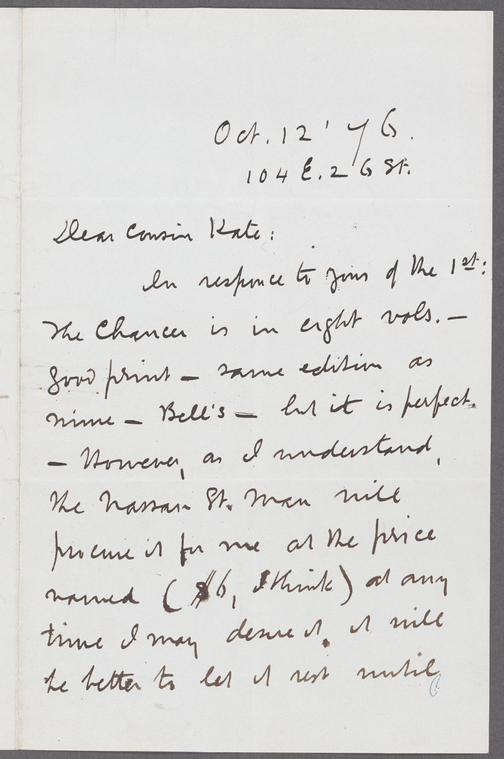 Oct. 12' 76.
104 E. 26 St.
Dear Cousin Kate:
In responce to yours of the 1st:
The Chaucer is in eight vols. —
good print — same edition as
mine — Bell's — but it is perfect.
— However, as I understand,
the Nassau St. man will
procure it for me at the price
named ($6, I think) at any
time I may desire it. It will
be better to let it rest until